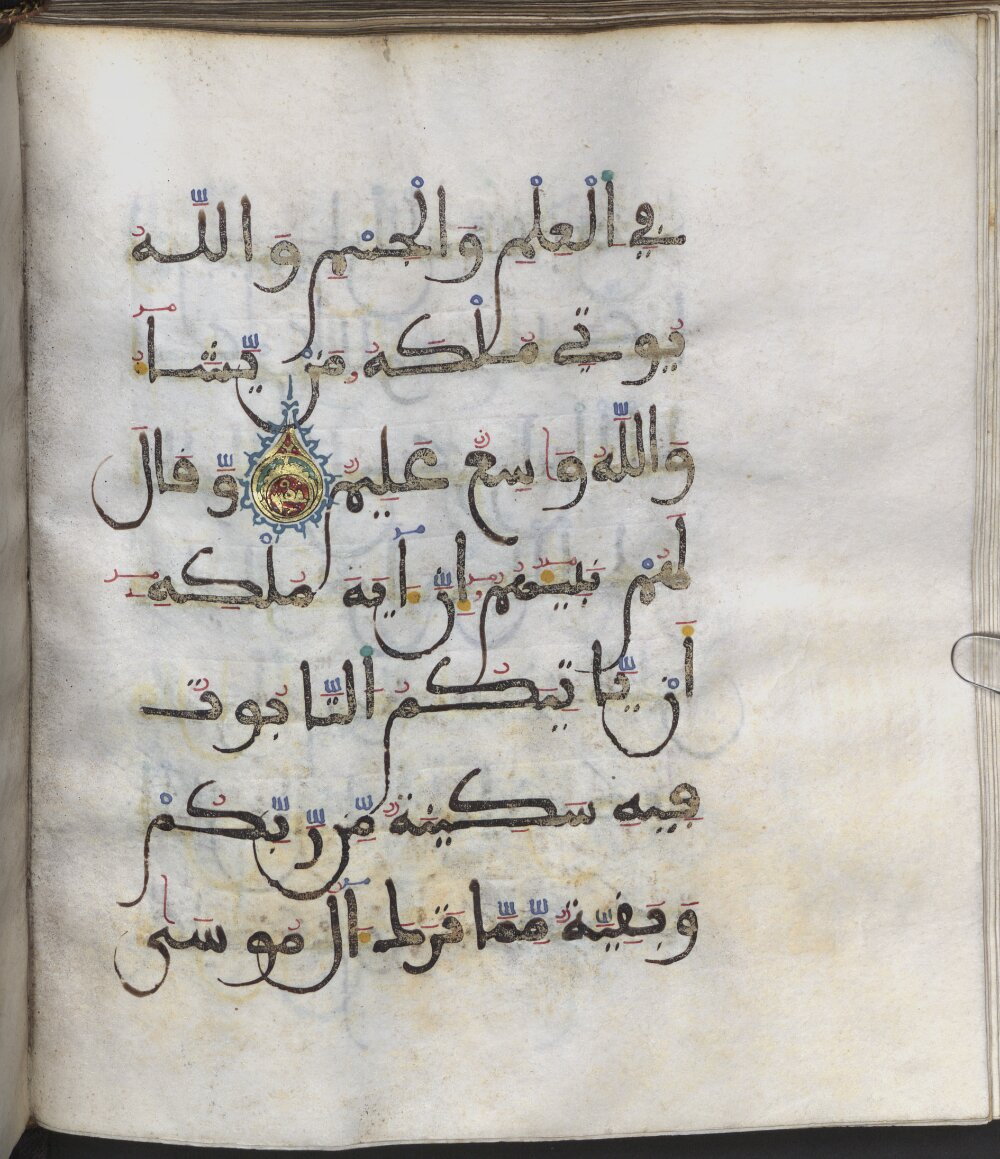 في العلم والجسم والله
يوتي ملكه من يشا
والله واسع عليم وقال
لهم نبيهم إن آية ملكه
أن ياتيكم التابوت
فيه سكينة من ربكم
وبقية مما ترك آل موسى